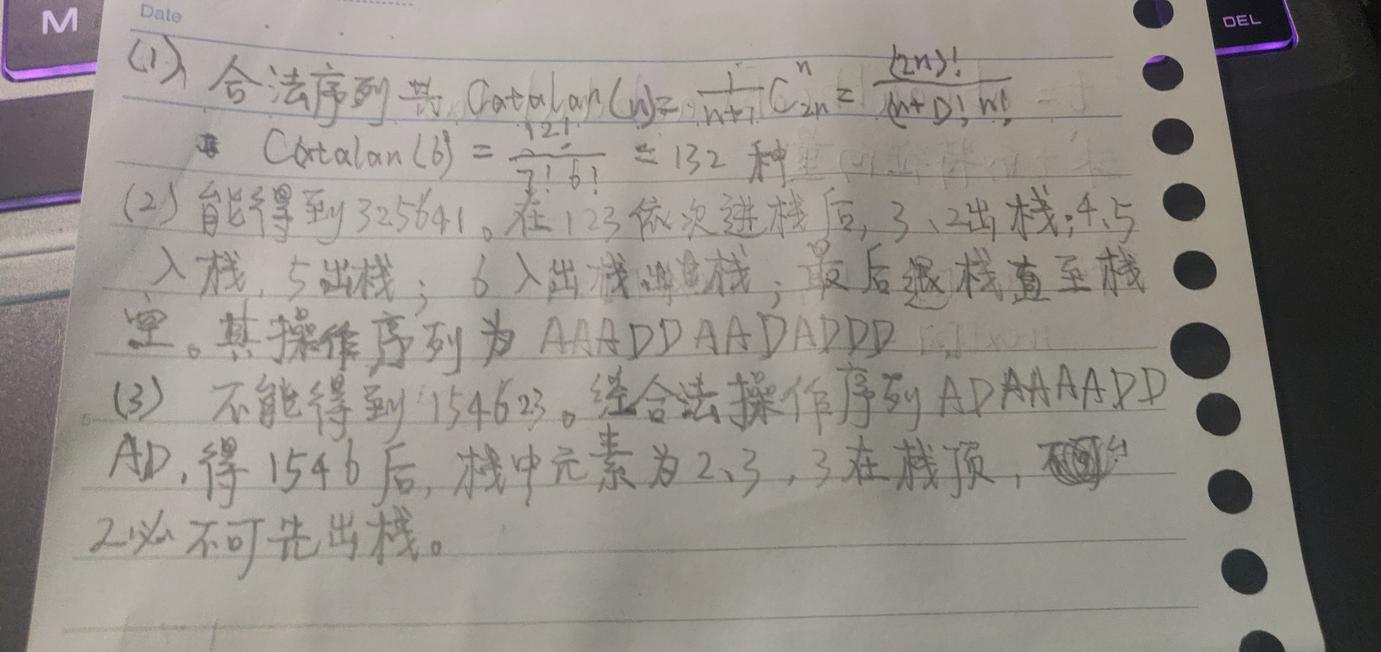 M
DEL
Date
(1) 合法序列共 Catalan(n)= \frac{1}{n+1} C_{2n}^{n} = \frac{(2n)!}{(n+1)! n!}
Catalan(6) = \frac{12!}{7! 6!} = 132 种
(2) 能得到325641。在123依次进栈后, 3、2出栈;4、5
入栈,5出栈; 6入出栈栈;最后退栈直至栈
空。其操作序列为 AAADDAADADDD
(3) 不能得到154623。经合法操作序列 ADAAAADD
AD,得1546后,栈中元素为2、3,3在栈顶,
2必不可先出栈。